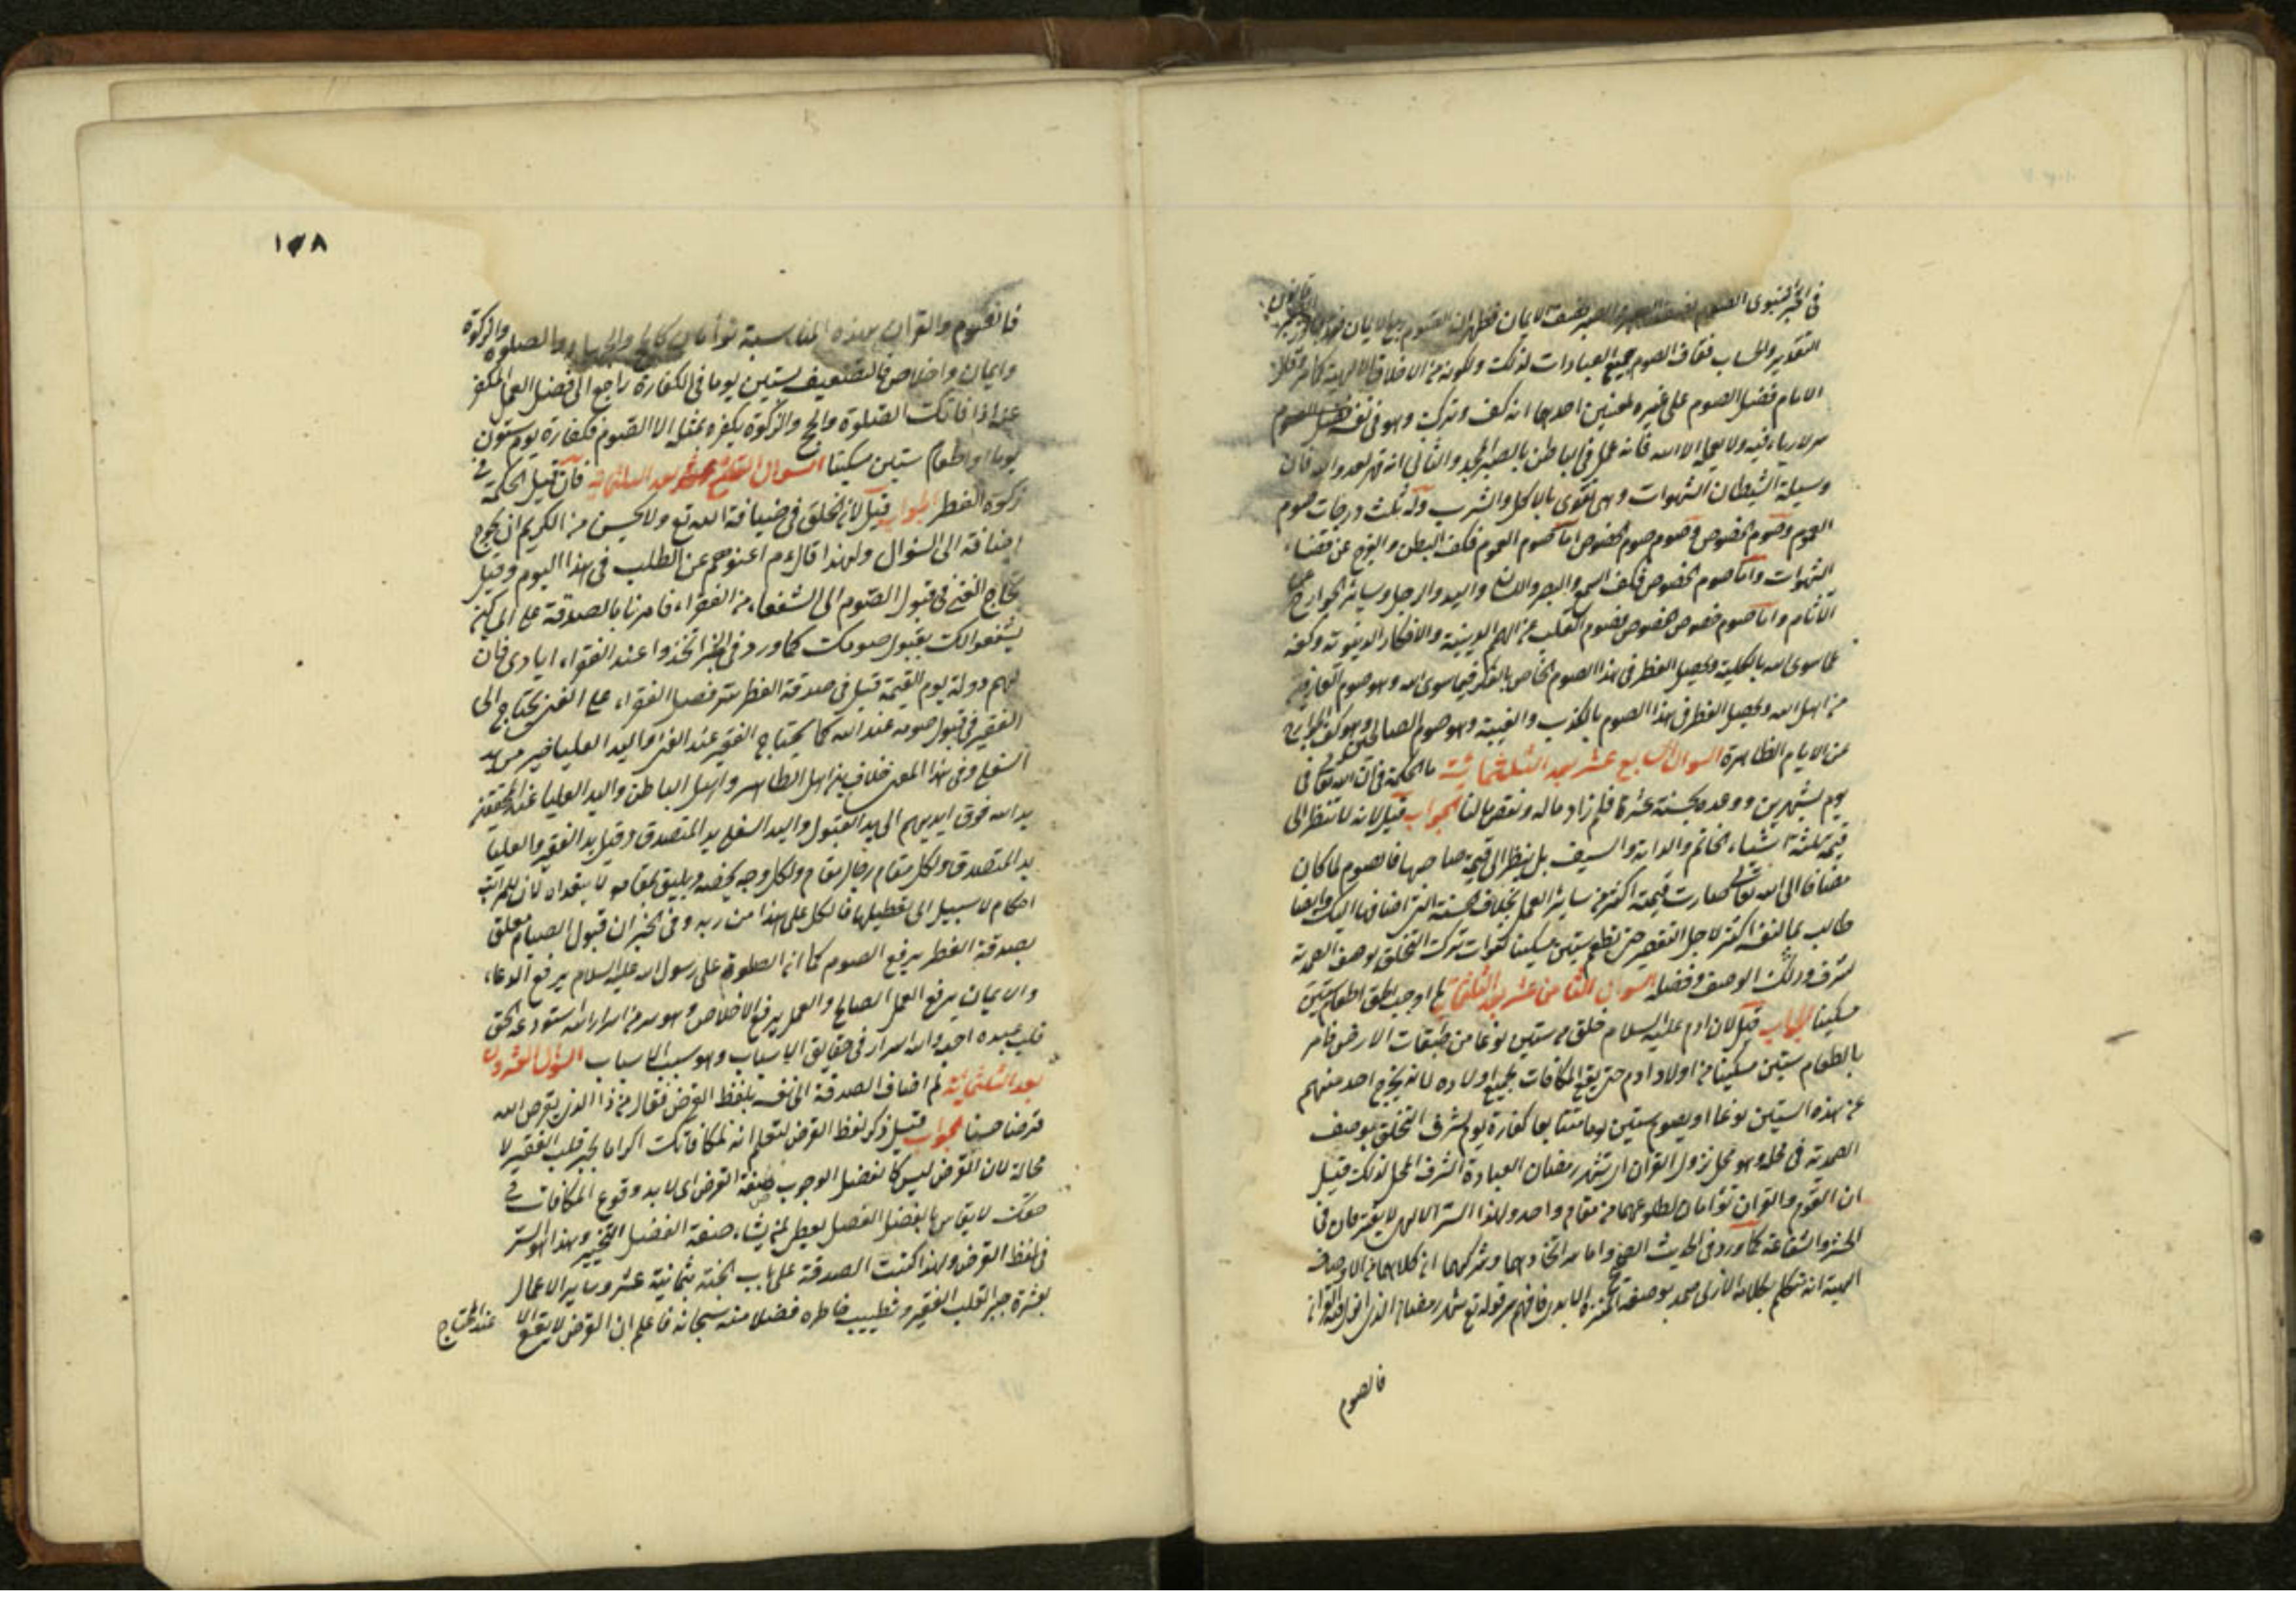 في الخبر النبوي الصوم نصف الصبر والصبر نصف الايمان فظهر ان الصوم ربع الايمان
التقدير والحساب ففاق الصوم جميع العبادات لذلك ولكونه من الاخلاق الالهية كما مر وقال
الامام فضل الصوم على غيره لمعنيين احدهما انه كف وترك وهو في نفسه
سر لا رياء فيه ولا يعلمه الا الله فانه عمل في الباطن بالصبر المجرد والثاني انه قهر لعدو الله فان
وسيلة الشيطان الشهوات وهي تقوى بالاكل والشرب وله ثلث درجات صوم
العموم وصوم الخصوص وصوم خصوص الخصوص اما صوم العموم فكف البطن والفرج عن قضاء
الشهوات واما صوم الخصوص فكف السمع والبصر واللسان واليد والرجل وسائر الجوارح عن
الآثام واما صوم خصوص الخصوص فصوم القلب عن الهمم الدنية والافكار الدنيوية وكفه
عما سوى الله بالكلية ويحصل الفطر في هذا الصوم الخاص بالفكر فيما سوى الله وهو صوم العارفين
من اهل الله ويحصل الفطر في هذا الصوم بالكذب والغيبة وهو صوم الصالحين وهو كف الجوارح
عن الايام الظاهرة السوال السابع عشر بعد الثلثمائة ما الحكمة في ان الله تعالى
يوم بشهرين ووعده بحسنة عشرة فلم زاد ماله ونقص مالنا الجواب قيل لانه لا تنظر الى
قيمة ثلثة اشياء الخاتم والدابة والسيف بل ينظر الى قيمة صاحبها فالصوم لما كان
مضافا الى الله تعالى صارت قيمته اكثر من سائر العمل بخلاف الحسنة التي اضافها اليك وايضا
طالب بما لنفسه اكثر لاجل التقصير حتى تطعم ستين مسكينا لفوات ترك التخلق بوصف الصمدية
لشرف ذلك الوصف وفضله السوال الثامن عشر بعد الثلثمائة لم اوجب الحق اطعام ستين
مسكينا الجواب قيل لان ادم عليه السلام خلق من ستين نوعا من طبقات الارض فامر
بالطعام ستين مسكينا من اولاد ادم حتى يقع المكافات بجميع اولاده لانه لا يخرج احد منهم
عن هذه الستين نوعا او يصوم ستين يوما متتابعا كفارة يوم لشرف التخلق بوصف
الصمدية في محله وهو محل نزول القرآن اي شهر رمضان العبادة الشرف المحل لذلك قيل
ان الصوم والقرآن توأمان لطلوعهما من مقام واحد ولهذا السر الالهي لا يفترقان في
الحشر والشفاعة كما ورد في الحديث الصحيح واما سر اتخادهما وشركهما ان كلاهما من الاوصاف
الهية انه تكلم بكلامه الازلي صمد بوصفه فافهم سر قوله تع شهر رمضان الذي انزل فيه القرآن
فالصوم
١٧٨
فالصوم والقرآن بهذه المناسبة توأمان كالحج والجهاد والصلوة والزكوة
وايمان واخلاص فالتضعيف بستين يوما في الكفارة راجع الى فضل العمل المكفر
عنه اذا فاتك الصلوة والحج والزكوة يكفره بمثله الا الصوم فكفارة يوم ستون
يوما او اطعام ستين مسكينا السوال التاسع عشر بعد الثلثمائة فان قيل ما الحكمة في
زكوة الفطر الجواب قيل لان الخلق في ضيافة الله تع ولا يحسن من الكريم ان يحوج
اضيافه الى السؤال ولهذا قال عم اغنوهم عن الطلب في هذا اليوم وقيل
يحتاج الغني في قبول الصوم الى الشفعاء من الفقراء فامرنا بالصدقة على المساكين
ليشفعوا لك بقبول صومك كما ورد في الخبر اتخذوا عند الفقراء ايادي فان
لهم دولة يوم القيمة قيل في صدقة الفطر سر فضل الفقراء على الغني يحتاج الى
الفقير في قبول صومه عند الله كما يحتاج الفقير عند الغني فاليد العليا خير من يد
السفلى وفي هذا المعنى خلاف بين اهل الظاهر واهل الباطن واليد العليا عند المحققين
يد الله فوق ايديهم اي يد القبول واليد السفلى يد المتصدق وقيل يد الفقير والعليا
يد المتصدق ولكل مقام رجال مقام ولكل وجه يخصه ويليق بمقامه لا يتعداه لان للمراتب
احكام لا سبيل الى تعطيلها فالكل على هذا من ربه وفي الخبر ان قبول الصيام معلق
بصدقة الفطر يرفع الصوم كما ان الصلوة على رسول الله عليه السلام يرفع الدعاء
والايمان يرفع العمل الصالح والعمل يرفع الاخلاص وهو سر من اسرار الله استودعه الحق
قلب عبده احبه ولله اسرار في حقايق الاسباب وهو سبب الاسباب السؤال العشرون
بعد الثلثمائة لم اضاف الصدقة الى نفسه بلفظ القرض فقال من ذا الذي يقرض الله
قرضا حسنا الجواب قيل ذكر لفظ القرض لتعلم انه لمكافاتك اكراما لجبر قلب الفقير لا
محالة لان القرض ليس كالفضل الوجوب صفة القرض اي لا بد وقوع المكافات في
حقك لا يقاس بالفضل الفضل يعطى لمن يشاء صفة الفضل التخيير وهذا هو السر
في لفظ القرض ولهذا كتبت الصدقة على باب الجنة بثمانية عشر وساير الاعمال
بعشرة جبر القلب الفقير وتطييب خاطره فضلا منه سبحانه فاعلم ان القرض لا يقع الا
عند المحتاج